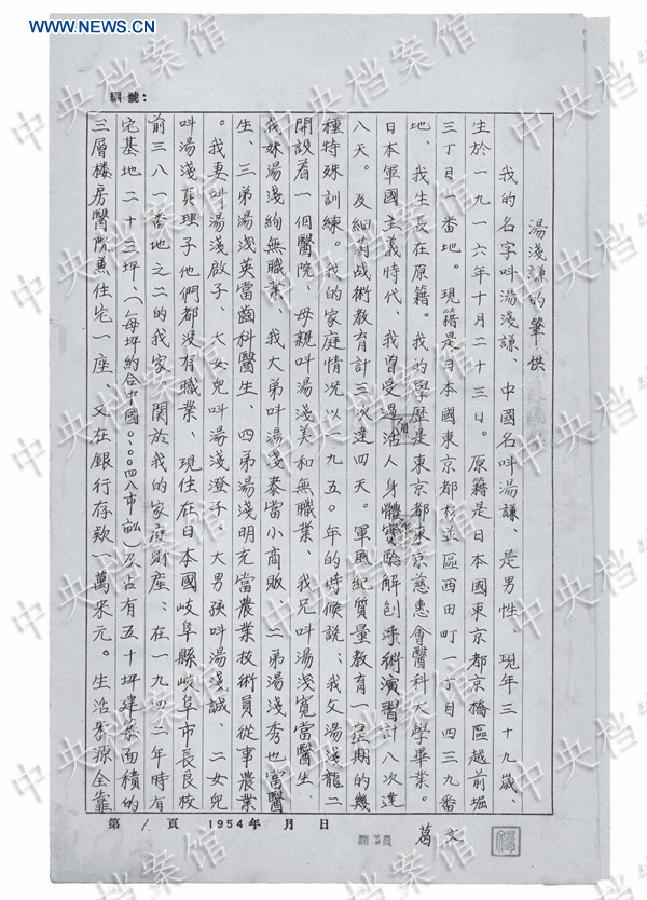 WWW.NEWS.CN
中央档案馆
編號:
湯淺謙的筆供
我的名字叫湯淺謙、中國名叫湯謙、是男性、現年三十九歲、
生於一九一六年十月二十三日。原籍是日本國東京都京橋區越前堀
三丁目一番地。現籍是日本國東京都杉並區西田町一丁目四三九番
地、我生長在原籍。我的學歷是東京都東京慈惠會醫科大學畢業。
日本軍國主義時代、我曾受過活人身體實驗解刨手術演習計八次達
八天。及細菌战術教育計三次達四天。軍風紀質量教育一星期的幾
種特殊訓練。我的家庭情况以一九五〇年的時候説:我父湯淺龍二
開設着一個醫院、母親叫湯淺美和無職業、我兄叫湯淺寬當醫生、
我妹湯淺絢無職業、我大弟叫湯淺泰當小商販、二弟湯淺秀也當醫
生、三弟湯淺英當齒科醫生、四弟湯淺明充當農業技術員從事農業
。我妻叫湯淺啟子、大女兒叫湯淺澄子、大男孩叫湯淺誠、二女兒
叫湯淺真理子他們都没有職業、現住在日本國岐阜縣岐阜市長良校
前三八一番地之二的我家、関於我的家庭財產:在一九四二年時有
宅基地二十三坪、(每坪約合中國〇.〇〇四八市畝)及占有五十坪建築面積的
三層楼房醫院兼住宅一座、又在銀行存款一萬宋元。生活来源全靠
第 1 頁 1954年 月 日
葛文